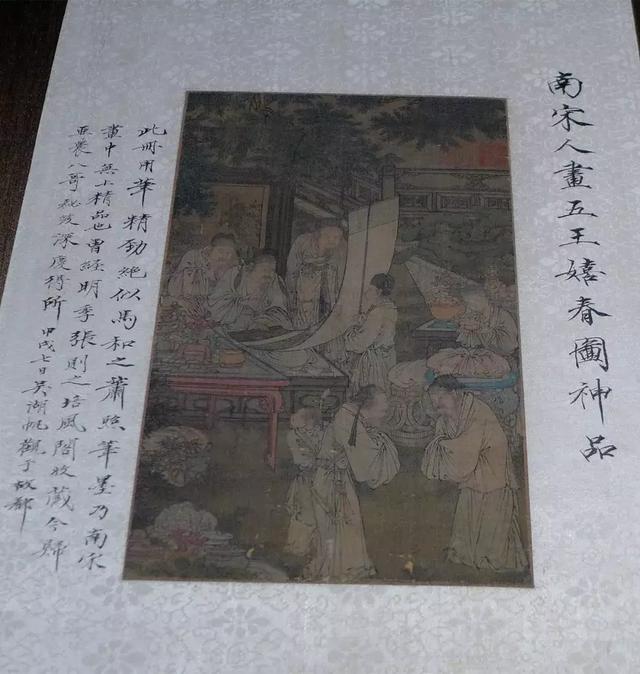 南宋人畫五王嬉春圖神品
此冊用筆精勁絕似馬和之蕭照筆墨乃南宋
畫中無上精品也曾經明季張則之培風閣收藏今歸
亞農八哥秘笈深慶得所
甲戌七日吳湖帆觀于故都